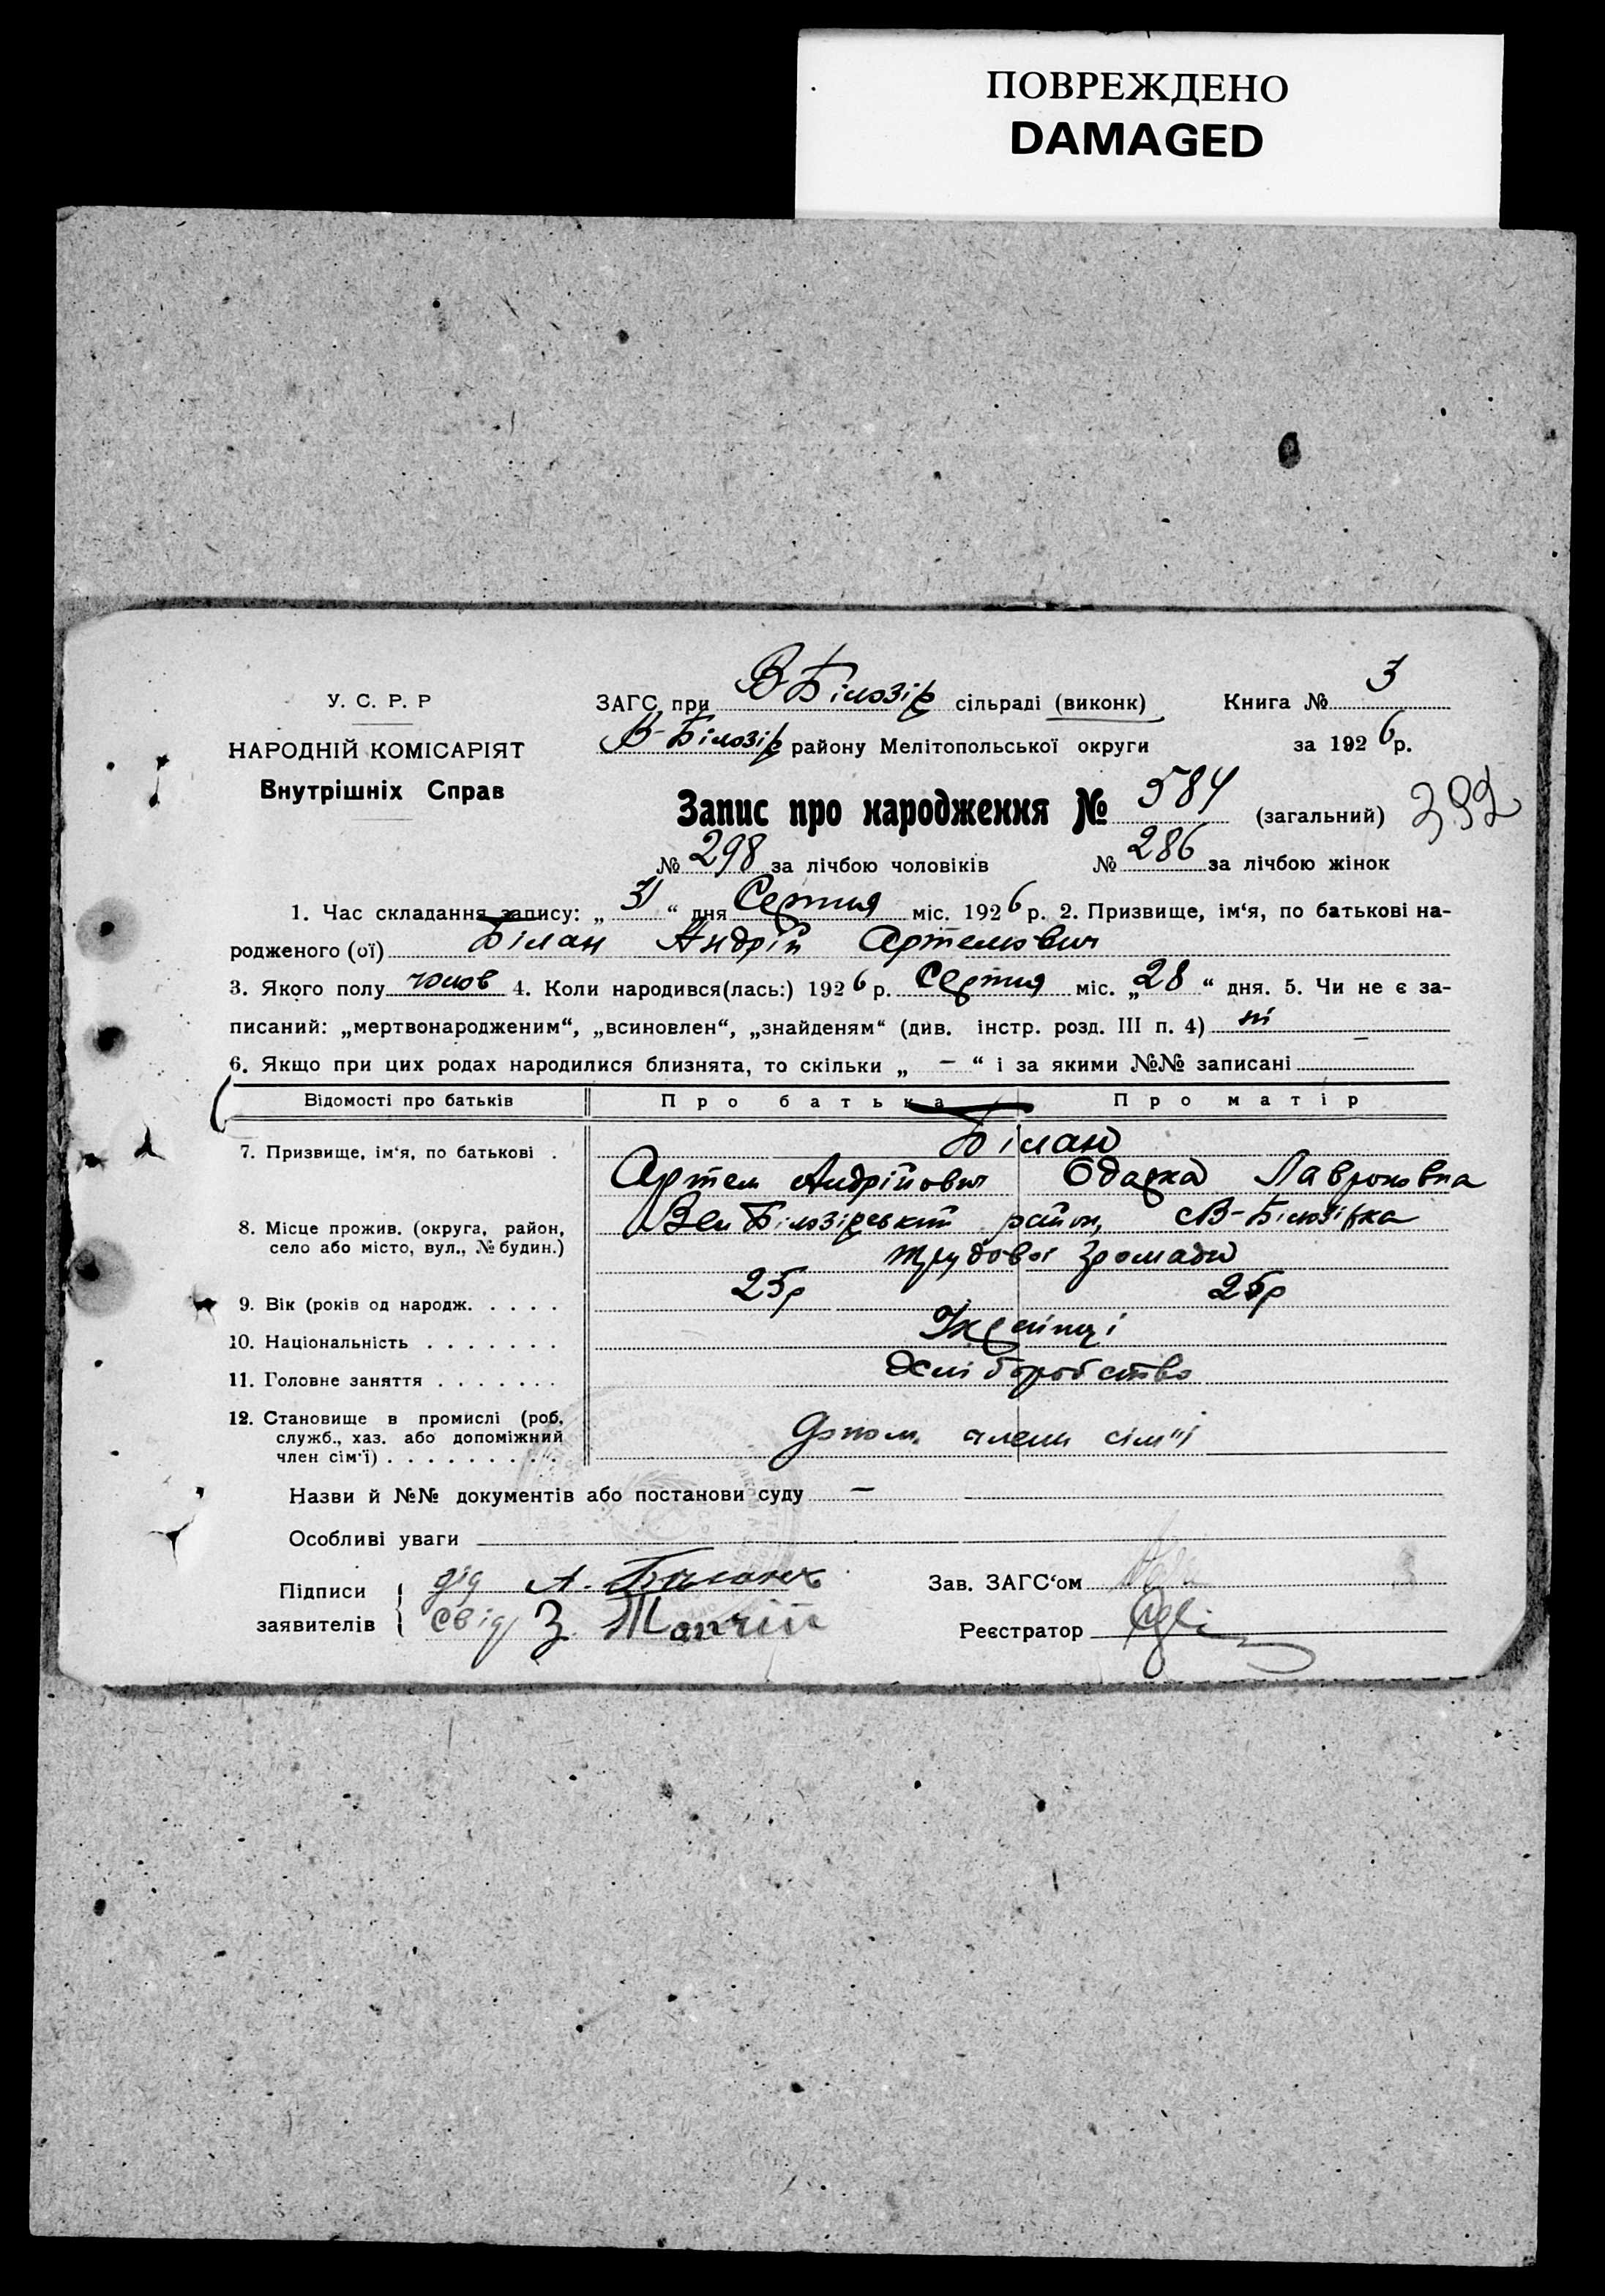 ПОВРЕЖДЕНО
DAMAGED
У. С. Р. Р
НАРОДНІЙ КОМІСАРІЯТ
Внутрішніх Справ
ЗАГС при В Білозір сільраді (виконк) Книга № 3
В-Білозір району Мелітопольської округи за 1926 р.
Запис про народження № 584 (загальний) 392
№ 298 за лічбою чоловіків № 286 за лічбою жінок
1. Час складання запису: „ 31 “ дня Серпня міс. 1926 р. 2. Призвище, ім‘я, по батькові на-
родженого (ої) Білан Андрій Артемович
3. Якого полу чолов 4. Коли народився(лась:) 1926 р. Серпня міс. „ 28 “ дня. 5. Чи не є за-
писаний: „мертвонародженим“, „всиновлен“, „знайденям“ (див. інстр. розд. III п. 4) ні
6. Якщо при цих родах народилися близнята, то скільки „ – “ і за якими №№ записані –
Відомості про батьків Про батька Про матір
7. Призвище, ім‘я, по батькові . Білан
Артем Андрійович Одарка Лавроновна
8. Місце прожив. (округа, район, село або місто, вул., № будин.) Вел Білозірський район, В-Білозірка
трудової громади
9. Вік (років од народж. . . . . 25р 25р
10. Національність . . . . . . . Українці
11. Головне заняття . . . . . . . Хліборобство
12. Становище в промислі (роб,
служб., хаз. або допоміжний
член сім‘ї) . . . . . . . . . . Допом. члени сім"ї
Назви й №№ документів або постанови суду –
Особливі уваги
Підписи
заявителів
дід А. Білан
свід З.
Зав. ЗАГС‘ом
Реєстратор